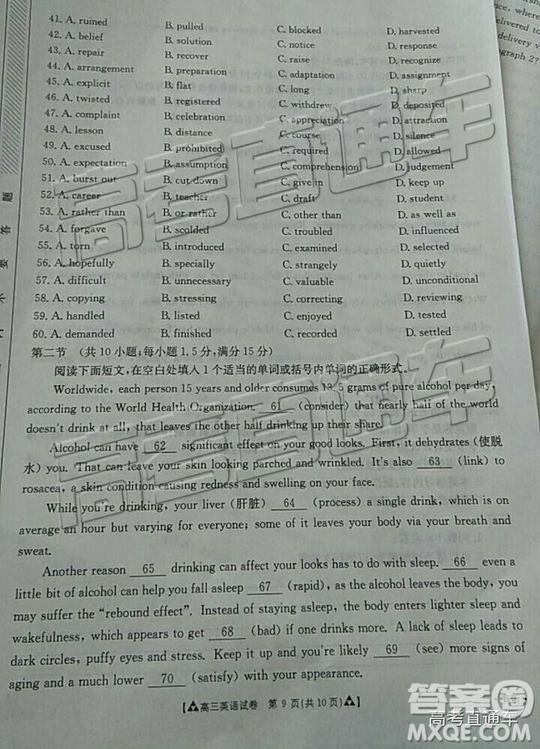 livered to
delivery v
ragraph 2?
41. A. ruined B. pulled C. blocked D. harvested
42. A. belief B. solution C. notice D. response
43. A. repair B. recover C. raise D. recognize
44. A. arrangement B. preparation C. adaptation D. assignment
45. A. explicit B. flat C. long D. sharp
46. A. twisted B. registered C. withdrew D. deposited
47. A. complaint B. celebration C. appreciation D. attraction
48. A. lesson B. distance C. course D. silence
49. A. excused B. prohibited C. required D. allowed
50. A. expectation B. assumption C. comprehension D. judgement
51. A. burst out B. cut down C. give in D. keep up
52. A. career B. teacher C. draft D. student
53. A. rather than B. or rather C. other than D. as well as
54. A. forgave B. scolded C. troubled D. influenced
55. A. torn B. introduced C. examined D. selected
56. A. hopefully B. specially C. strangely D. quietly
57. A. difficult B. unnecessary C. valuable D. unconditional
58. A. copying B. stressing C. correcting D. reviewing
59. A. handled B. listed C. enjoyed D. tested
60. A. demanded B. finished C. recorded D. settled
第二节 (共10小题;每小题1.5分,满分15分)
阅读下面短文,在空白处填入1个适当的单词或括号内单词的正确形式。
Worldwide, each person 15 years and older consumes 13.5 grams of pure alcohol per day,
according to the World Health Organization. 61 (consider) that nearly half of the world
doesn't drink at all, that leaves the other half drinking up their share.
Alcohol can have 62 significant effect on your good looks. First, it dehydrates (使脱
水) you. That can leave your skin looking parched and wrinkled. It's also 63 (link) to
rosacea, a skin condition causing redness and swelling on your face.
While you're drinking, your liver (肝脏) 64 (process) a single drink, which is on
average an hour but varying for everyone; some of it leaves your body via your breath and
sweat.
Another reason 65 drinking can affect your looks has to do with sleep. 66 even a
little bit of alcohol can help you fall asleep 67 (rapid), as the alcohol leaves the body, you
may suffer the "rebound effect". Instead of staying asleep, the body enters lighter sleep and
wakefulness, which appears to get 68 (bad) if one drinks more. A lack of sleep leads to
dark circles, puffy eyes and stress. Keep it up and you're likely 69 (see) more signs of
aging and a much lower 70 (satisfy) with your appearance.
高三英语试卷 第9页(共10页)
题
答
要
高考直通车
高考直通车
高考直通车
答案圈
MXQE.COM